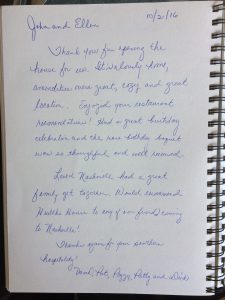 10/2/16
John and Ellen
Thank you for opening the
house for us. It's a lovely home,
amenities were great, cozy and great
location. Enjoyed your restaurant
recommendations! Had a great birthday
celebration and the new birthday bouquet
was so thoughtful and well received.
Loved Nashville. Had a great
family get together. Would recommend
House to any of our friends coming
to Nashville!
Thanks again for your southern
hospitality!
Pat, Peggy, Patty and